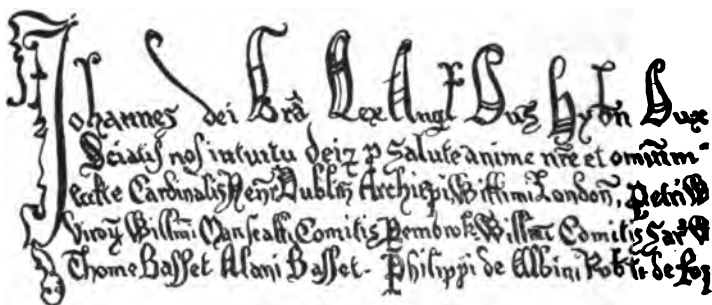 Johannes dei Grā Rex Angł Dns Hybñ Dux
Sciatis nos intuitu dei ⁊ p salute anime nr̄e et omniũm
eccłte Cardinalis Henr Dublin Archiepi Willimi London, Petri W
Viroꝝ Willmi Marscalli Comitis Pembrok Willmi Comitis Sar W
Thome Basset Alani Basset - Philippi de Albini Robti de Rop